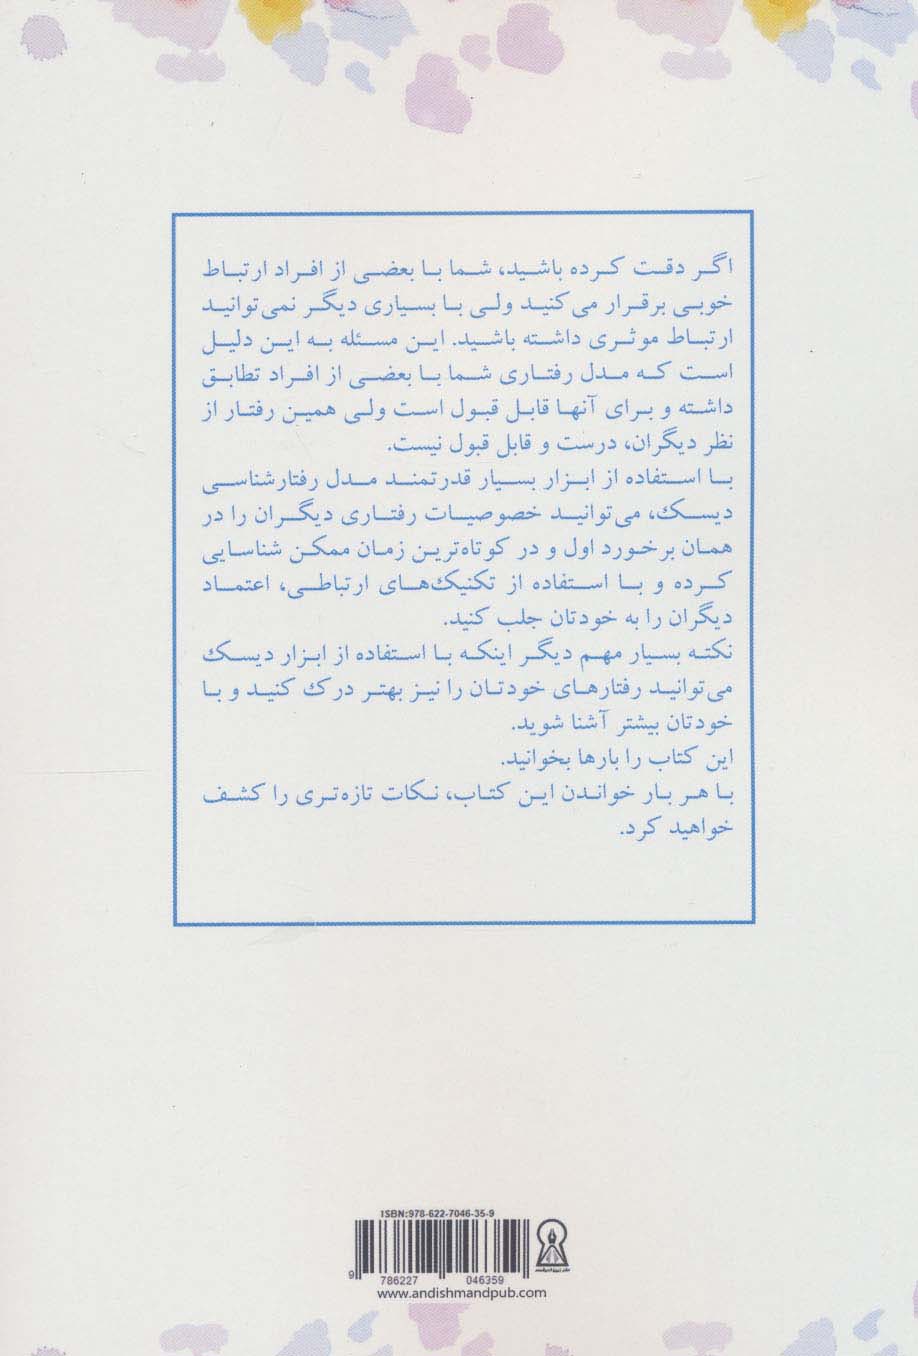 اگر دقت کرده باشید، شما با بعضی از افراد ارتباط
خوبی برقرار می‌کنید ولی با بسیاری دیگر نمی‌توانید
ارتباط موثری داشته باشید. این مسئله به این دلیل
است که مدل رفتاری شما با بعضی از افراد تطابق
داشته و برای آنها قابل قبول است ولی همین رفتار از
نظر دیگران، درست و قابل قبول نیست.
با استفاده از ابزار بسیار قدرتمند مدل رفتارشناسی
دیسک، می‌توانید خصوصیات رفتاری دیگران را در
همان برخورد اول و در کوتاه‌ترین زمان ممکن شناسایی
کرده و با استفاده از تکنیک‌های ارتباطی، اعتماد
دیگران را به خودتان جلب کنید.
نکته بسیار مهم دیگر اینکه با استفاده از ابزار دیسک
می‌توانید رفتارهای خودتان را نیز بهتر درک کنید و با
خودتان بیشتر آشنا شوید.
این کتاب را بارها بخوانید.
با هر بار خواندن این کتاب، نکات تازه‌تری را کشف
خواهید کرد.
ISBN:978-622-7046-35-9
9 786227 046359
www.andishmandpub.com